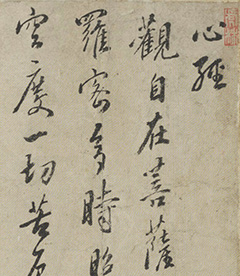 心經
觀自在菩薩
羅密多時照
空度一切苦厄